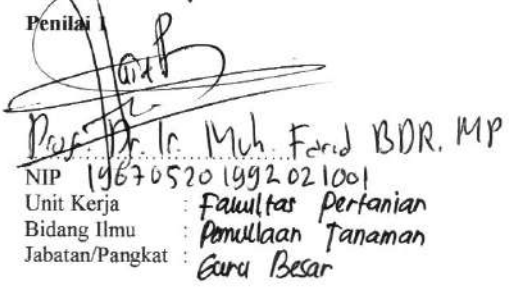 Penilai 1
Prof. Dr. Ir. Muh. Farid BDR. MP
NIP 19670520 199202 1001
Unit Kerja : Fakultas Pertanian
Bidang Ilmu : Pemuliaan Tanaman
Jabatan/Pangkat : Guru Besar